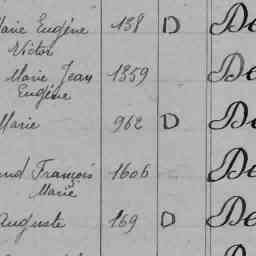 Marie Eugène 138 D De
Victor
Marie Jean 1359 De
Eugène
Marie 962 D De
François 1606 De
Marie
Auguste 169 D De